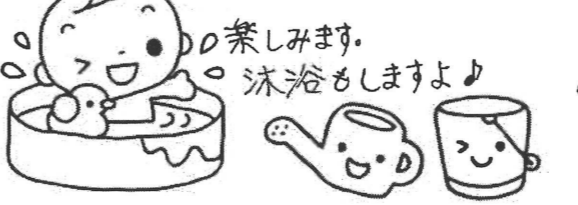 楽しみます。
沐浴もしますよ♪